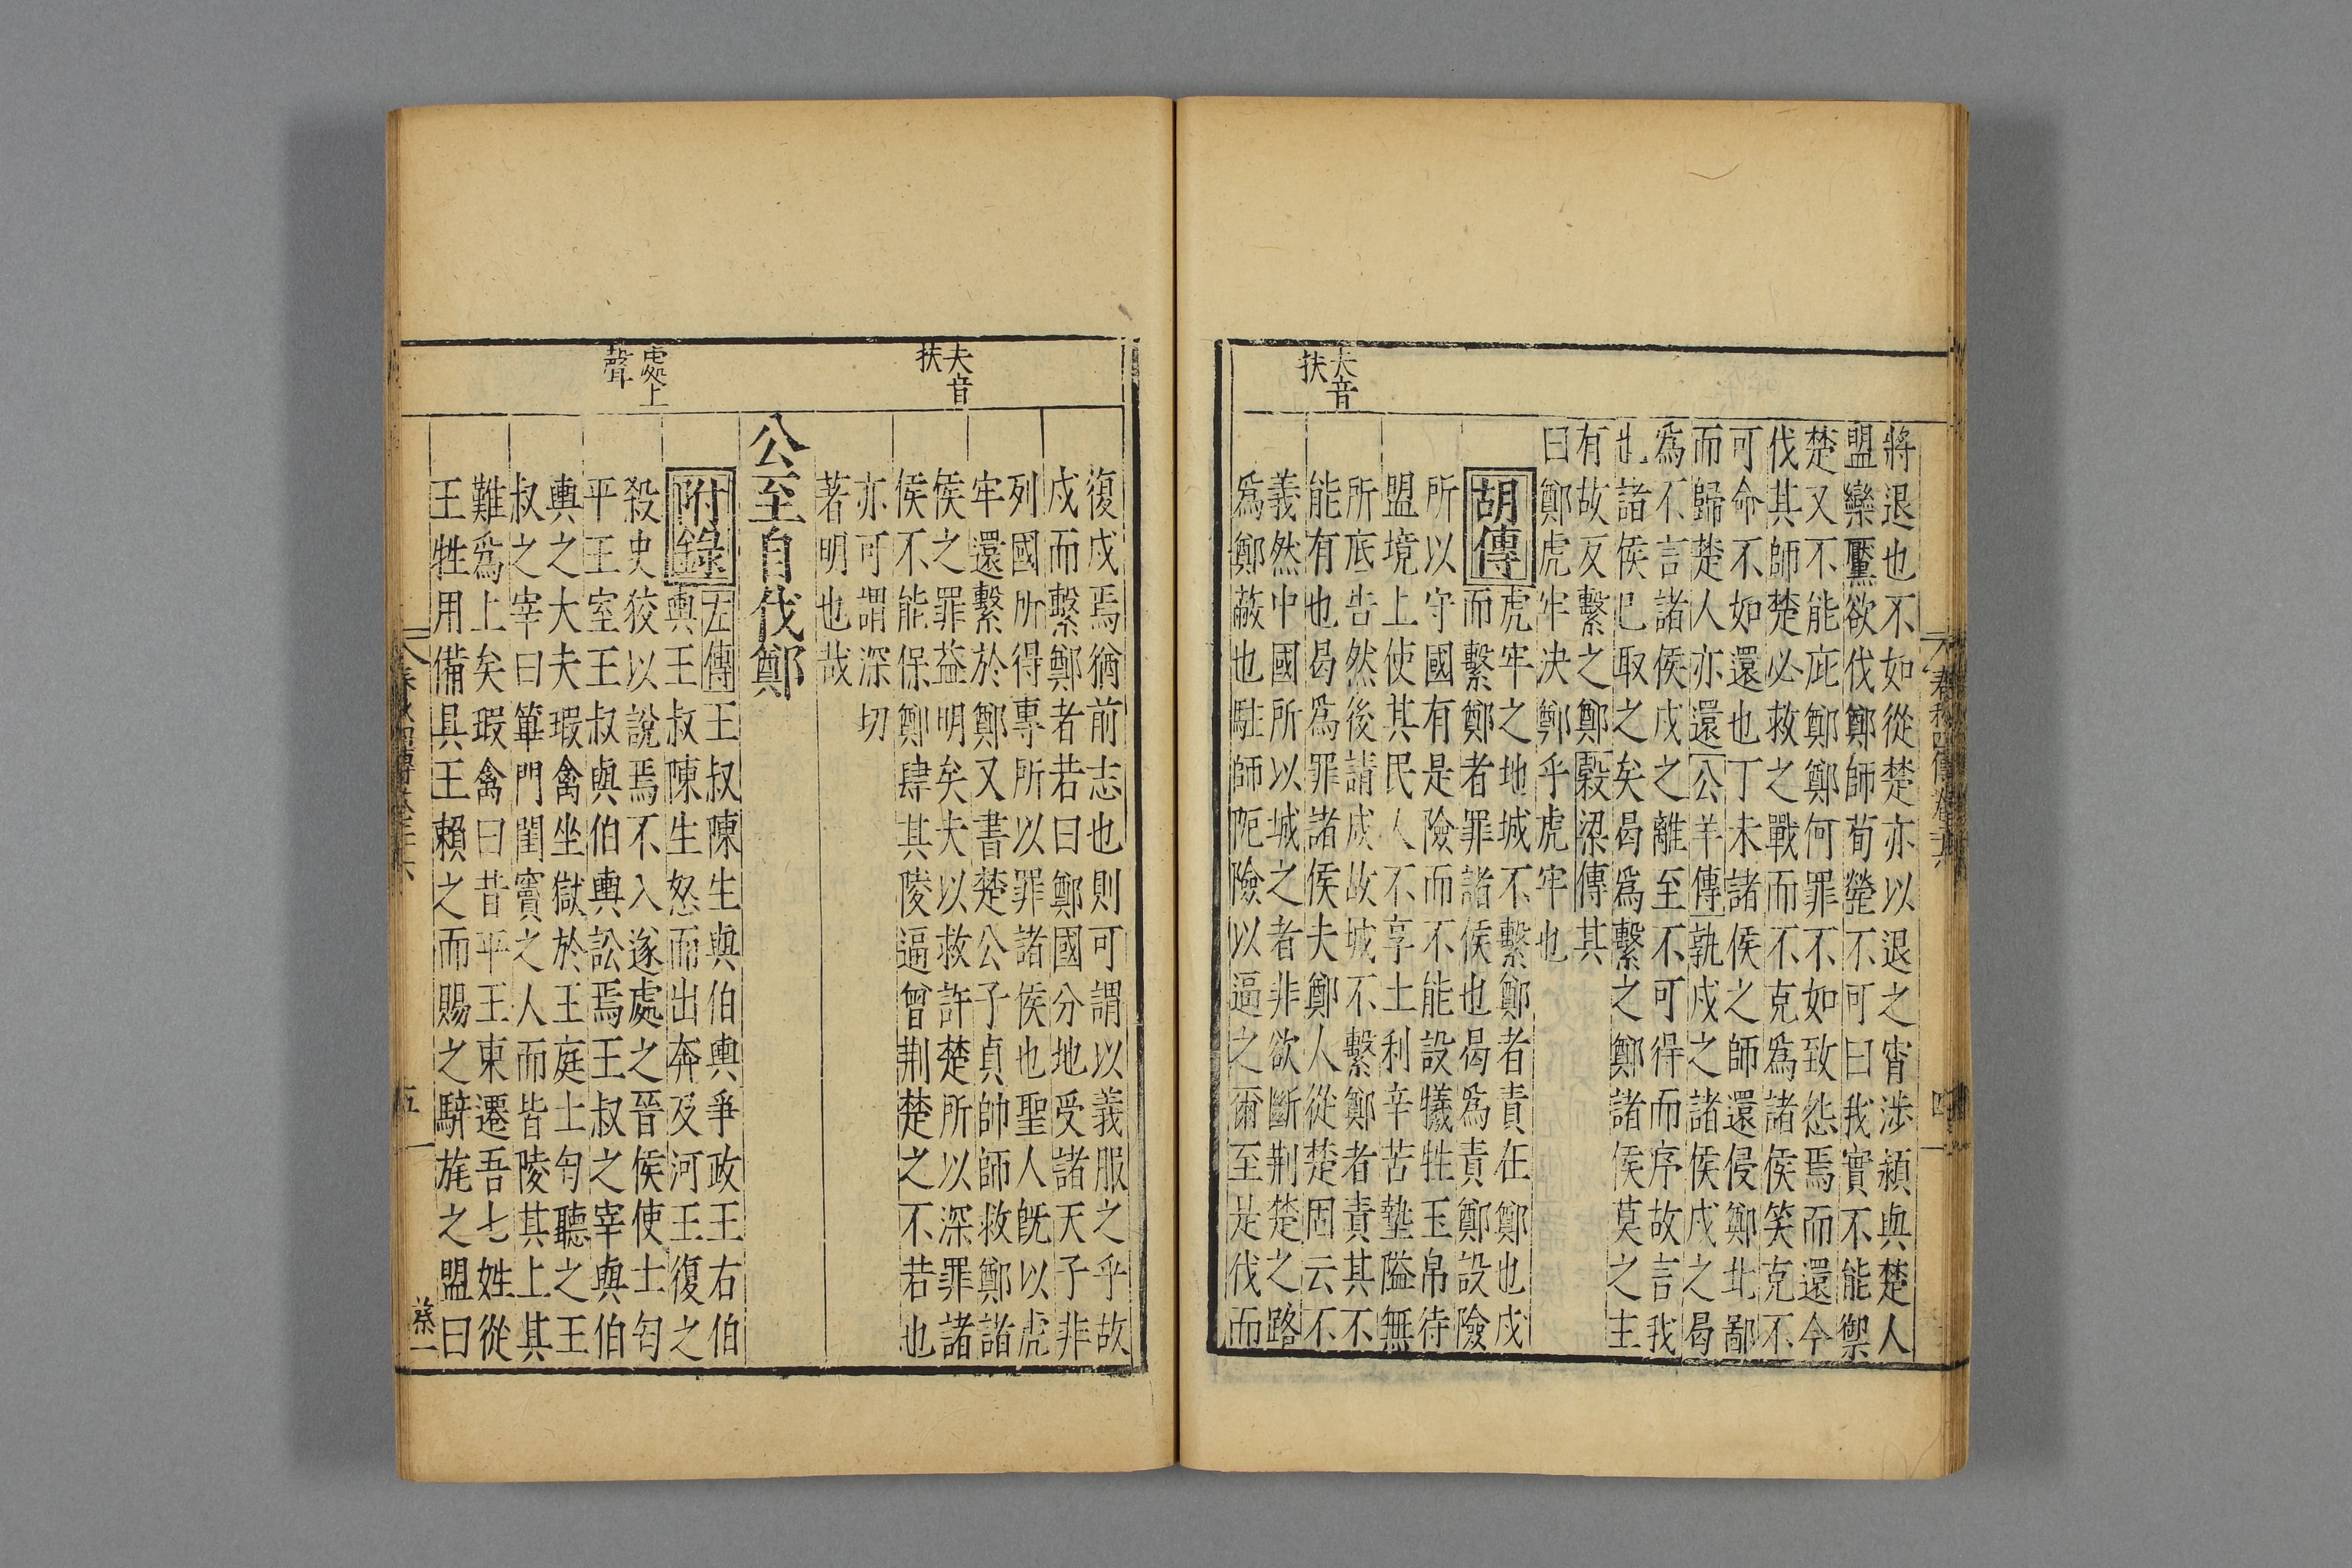 將退也不如從楚亦以退之宵涉潁與楚人
盟欒黶欲伐鄭師荀罃不可曰我實不能禦
楚又不能庇鄭鄭何罪不如致怨焉而還今
伐其師楚必救之戰而不克爲諸侯笑克不
可命不如還也丁未諸侯之師還侵鄭北鄙
而歸楚人亦還公羊傳孰戍之諸侯戍之曷
爲不言諸侯戍之離至不可得而序故言我
也諸侯已取之矣曷爲繫之鄭諸侯莫之主
有故反繫之鄭穀梁傳其
曰鄭虎牢決鄭乎虎牢也
胡傳虎牢之地城不繫鄭者責在鄭也戍
而繫鄭者罪諸侯也曷爲責鄭設險
所以守國有是險而不能設犧牲玉帛待
盟境上使其民人不享土利辛苦墊隘無
所底告然後請成故城不繫鄭者責其不
能有也曷爲罪諸侯夫鄭人從楚固云不
義然中國所以城之者非欲斷荆楚之路
爲鄭蔽也駐師阨險以逼之爾至是伐而
夫音
扶
春秋四傳卷二十六
四
復戍焉猶前志也則可謂以義服之乎故
戍而繫鄭者若曰鄭國分地受諸天子非
列國所得專所以罪諸侯也聖人旣以虎
牢還繫於鄭又書楚公子貞帥師救鄭諸
侯之罪益明矣夫以救許楚所以深罪諸
侯不能保鄭肆其陵逼曾荆楚之不若也
亦可謂深切
著明也哉
公至自伐鄭
附錄左傳王叔陳生與伯輿爭政王右伯
輿王叔陳生怒而出奔及河王復之
殺史狡以說焉不入遂處之晉侯使士匄
平王室王叔與伯輿訟焉王叔之宰與伯
輿之大夫瑕禽坐獄於王庭士匄聽之王
叔之宰曰篳門閨竇之人而皆陵其上其
難爲上矣瑕禽曰昔平王東遷吾七姓從
王牲用備具王賴之而賜之騂旄之盟曰
夫音
扶
處上
聲
春秋四傳卷二十六
五
蔡一